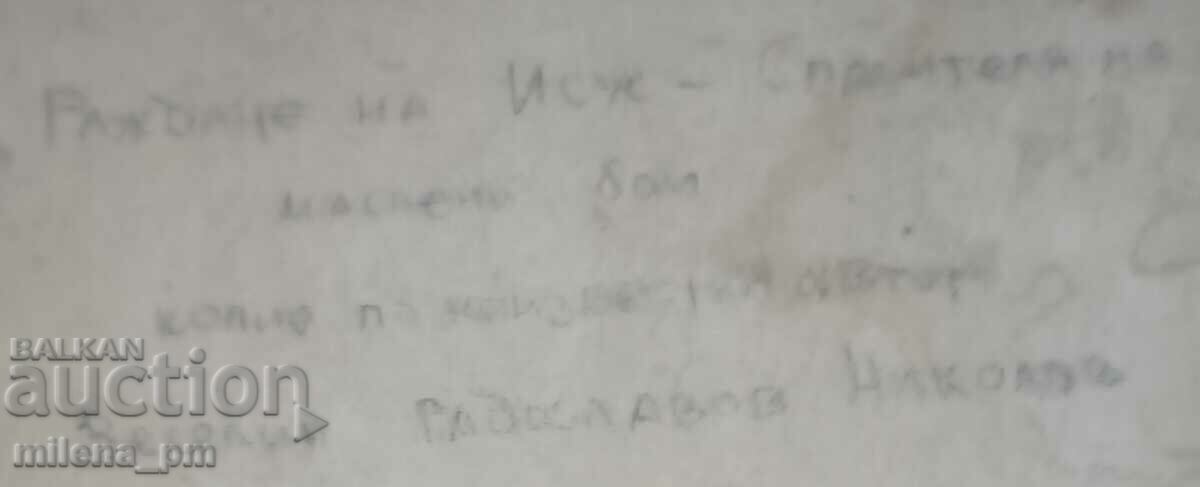 Раждане на Исус - Спасителя на
маслени бои
копие по неизвестен автор
Радославов Николов
BALKAN
auction
milena_pm